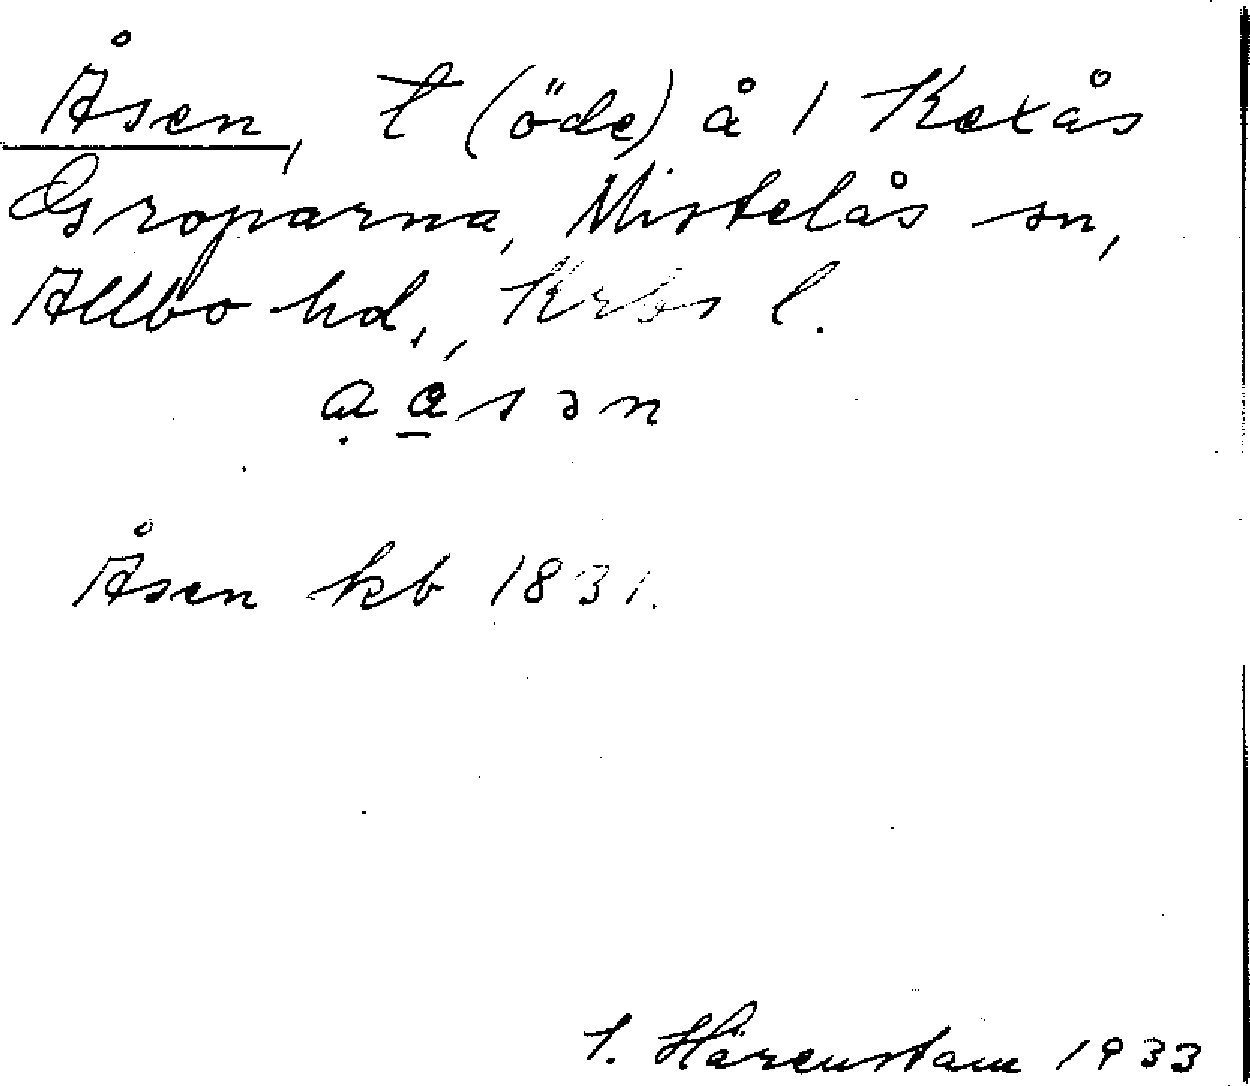 Åsen, t (öde) å 1 Kexås
Groparna, Mistelås sn,
Allbo hd., Krbs l.
Åsen kb 1831.
Härenstam 1933